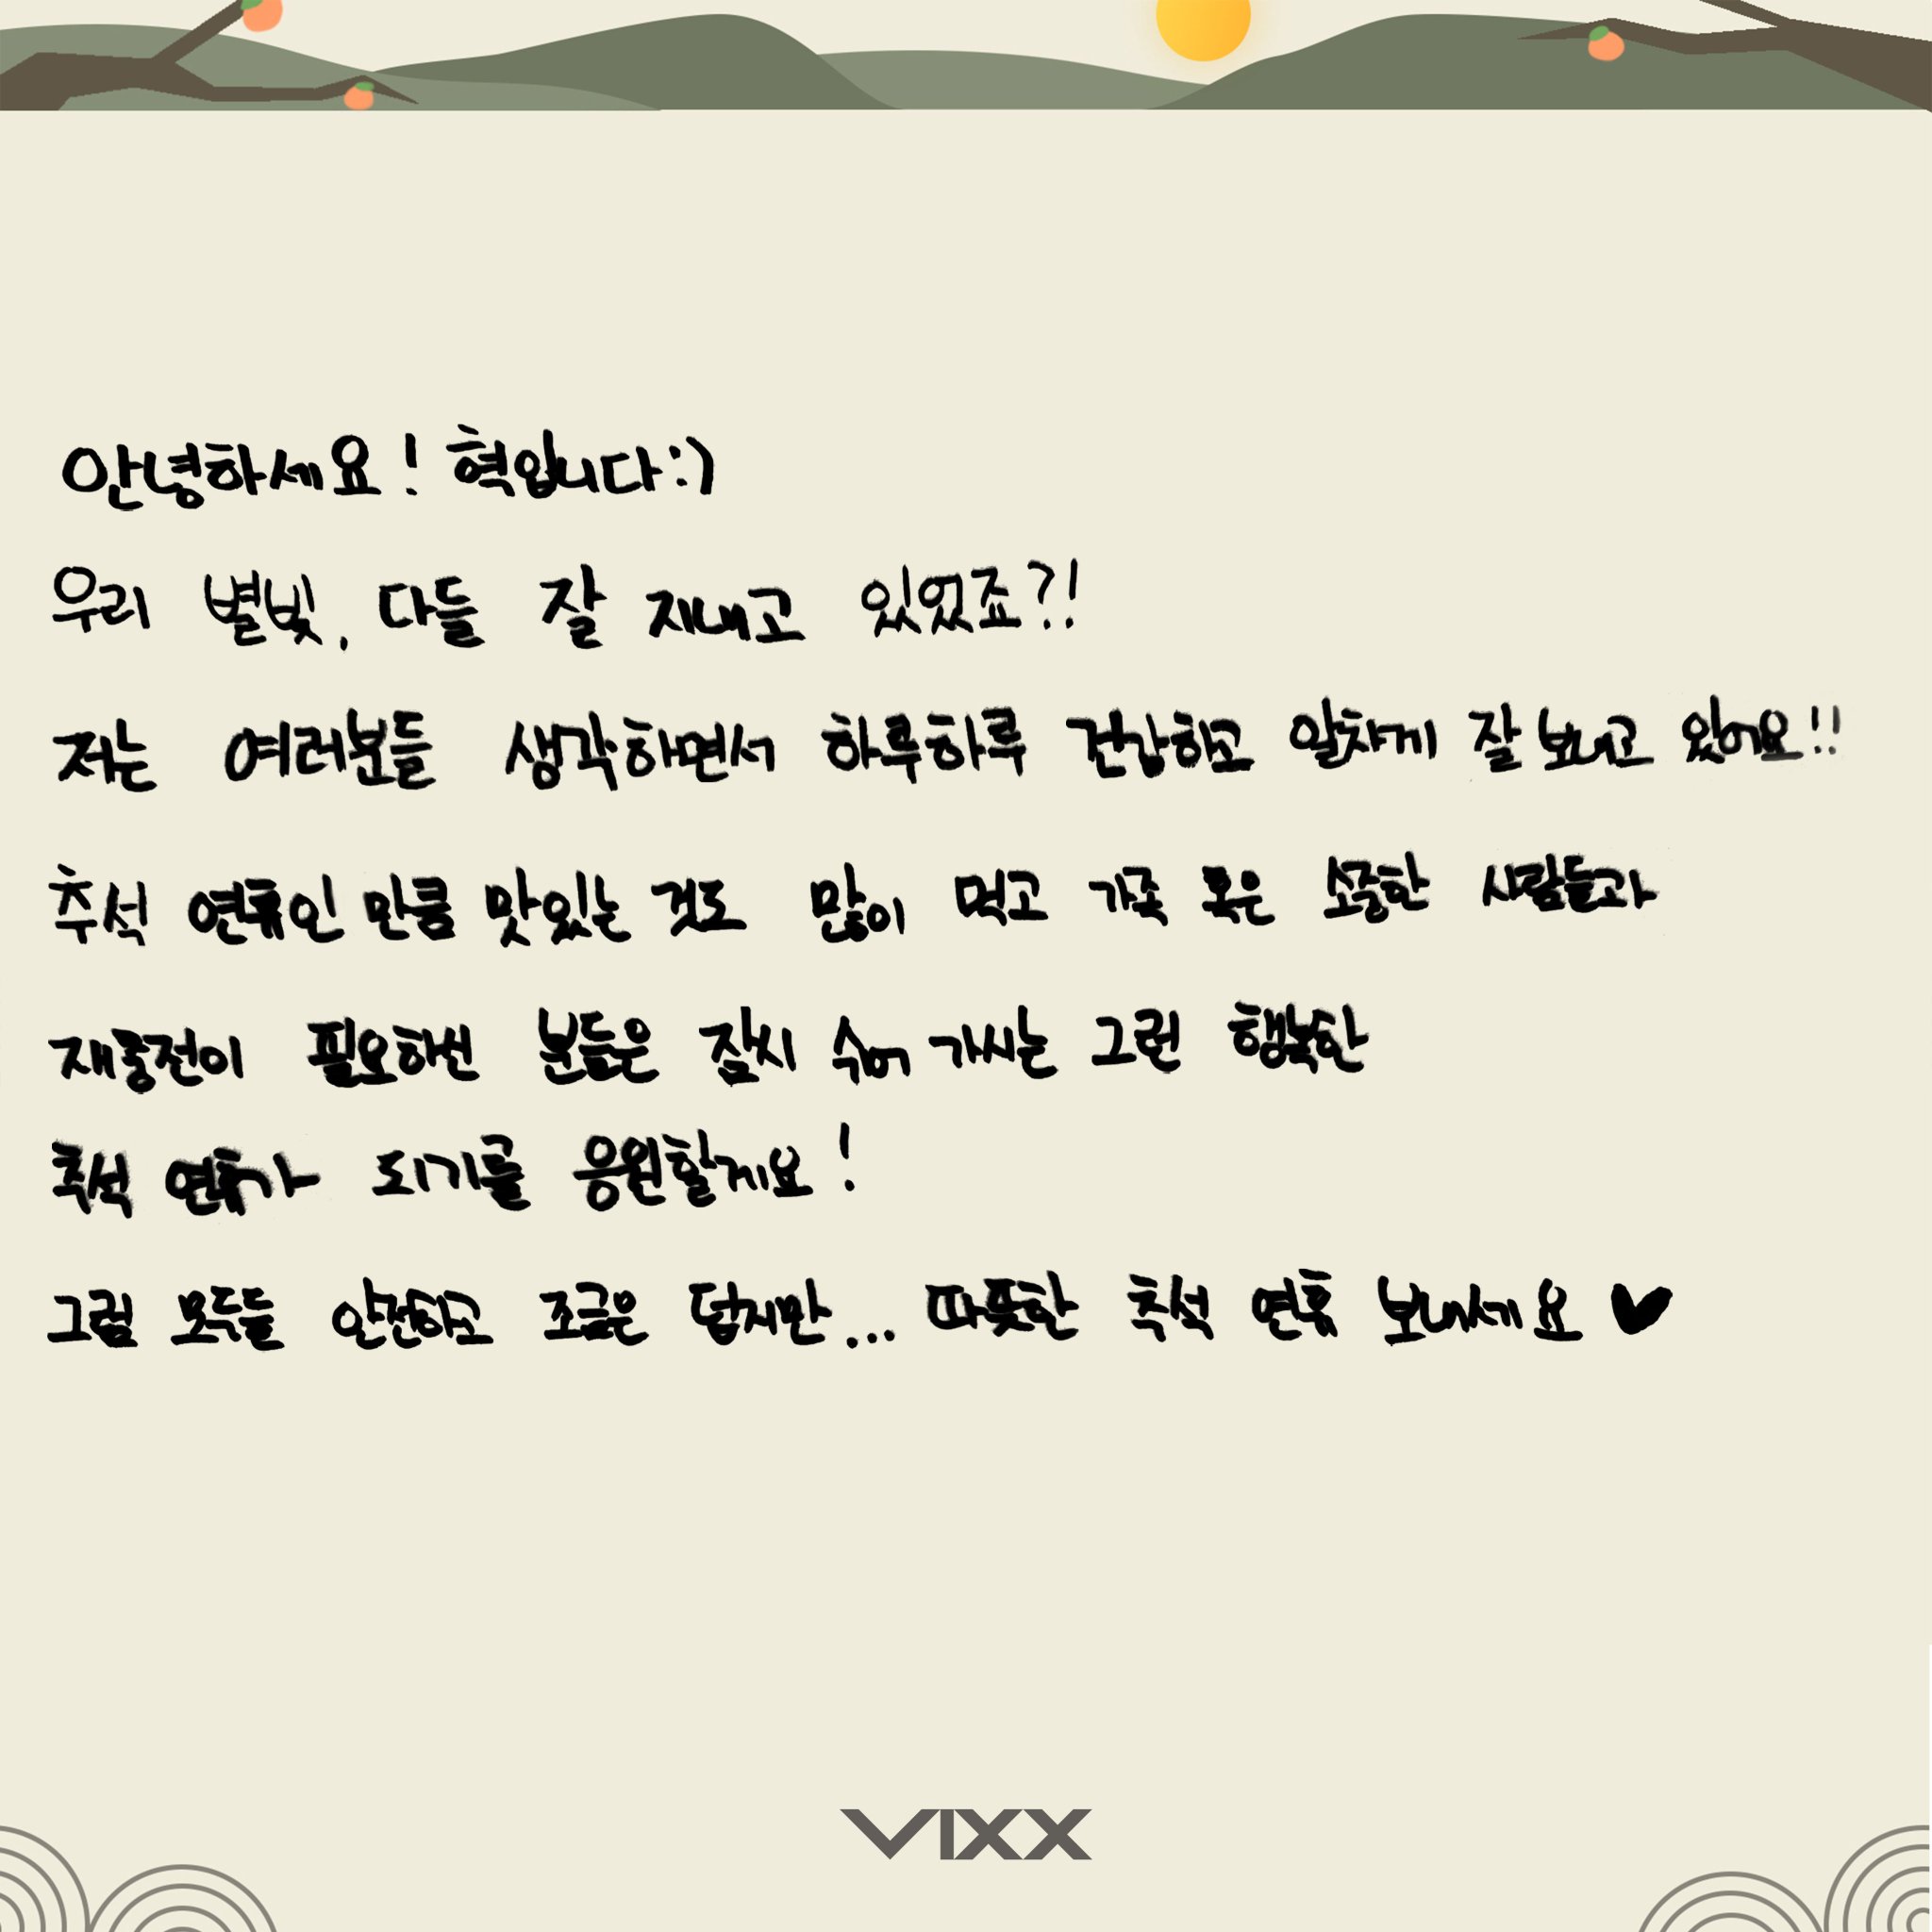 안녕하세요! 혁입니다:)
우리 별빛, 다들 잘 지내고 있었죠?!
저는 여러분들 생각하면서 하루하루 건강하고 알차게 잘 보내고 있어요!!
추석 연휴인 만큼 맛있는 것도 많이 먹고 가족 혹은 소중한 사람들과
재충전이 필요하신 분들은 잠시 쉬어 가시는 그런 행복한
추석 연휴가 되기를 응원할게요!
그럼 모두들 안전하고 조금은 덥지만... 따뜻한 추석 연휴 보내세요 ♥
VIXX